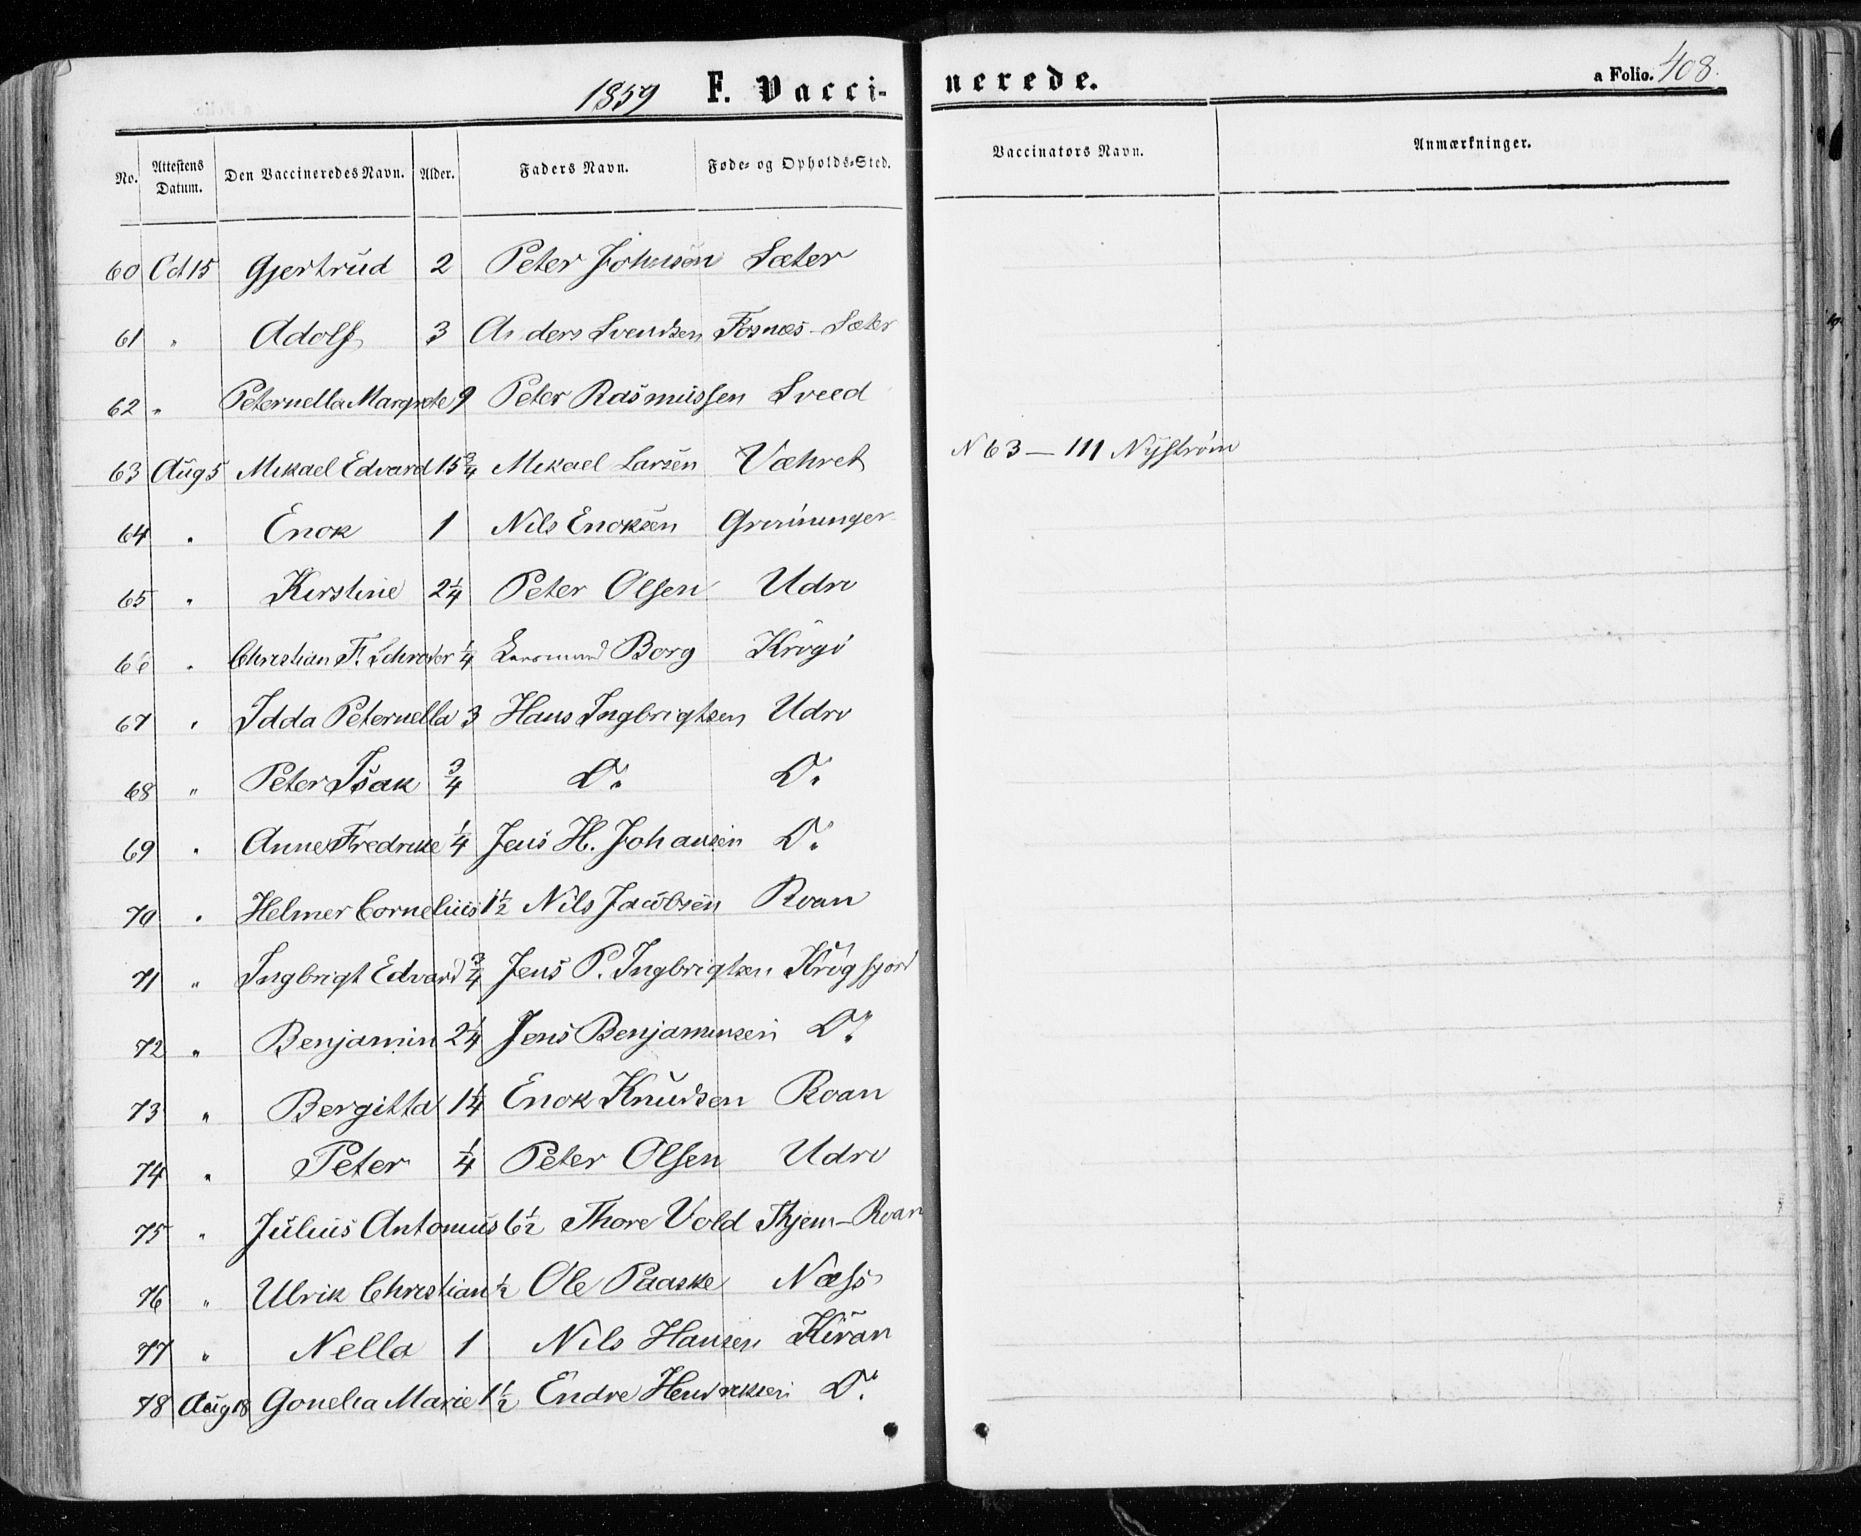 1859 F. Vacci- nerede. a Folio. 408.
No. Attestens Datum. Den Vaccineredes Navn. Alder. Faders Navn. Føde- og Opholds-Sted. Vaccinators Navn. Anmærkninger.
60 Oct 15 Gjertrud 2 Peter Johnsen Sæter
61 " Adolf 3 Anders Svendsen Fosnæs-Sæter
62 " Peternella Margrete 9 Peter Rasmussen Sveed
63 Aug 5 Mikael Edvard 15 3/4 Mikael Larsen Væhret N 63 - 111 Nyström
64 " Enok 1 Nils Enoksen
65 " Kirstine 2 1/4 Peter Olsen Udrø
66 " Christian F. Schrøder 1/4 Borg Krogø
67 " Idda Peternella 3 Hans Ingbrigtsen Udrø
68 " Peter Isak 3/4 Do Do
69 " Anne Fredrikke 1/4 Jens H. Johansen Do
70 " Helmer Cornelius 1 1/2 Nils Jacobsen Roan
71 " Ingbrigt Edvard 3/4 Jens P. Ingbrigtsen Krogfjord
72 " Benjamin 2 1/4 Jens Benjaminsen Do
73 " Bergitta 1 1/4 Enok Knudsen Roan
74 " Peter 1/4 Peter Olsen Udrø
75 " Julius Antonius 6 1/2 Thore Vold Hjem-Roan
76 " Ulrik Christian 1/2 Ole Paaske Næss
77 " Nella 1 Nils Hansen Kiran
78 Aug 18 Gonelia Marie 1 1/2 Endre Hendriksen Do